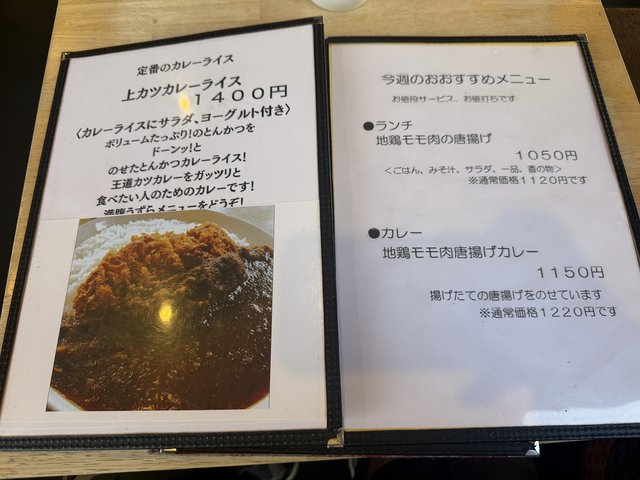 定番のカレーライス
上カツカレーライス
１４００円
〈カレーライスにサラダ、ヨーグルト付き〉
ボリュームたっぷり!のとんかつを
ドーンッ!と
のせたとんかつカレーライス!
王道カツカレーをガッツリと
食べたい人のためのカレーです!
満腹うずらメニューをどうぞ!
今週のおおすすめメニュー
お値段サービス、お値打ちです
●ランチ
地鶏モモ肉の唐揚げ
１０５０円
＜ごはん、みそ汁、サラダ、一品、香の物＞
※通常価格１１２０円です
●カレー
地鶏モモ肉唐揚げカレー
１１５０円
揚げたての唐揚げをのせています
※通常価格１２２０円です